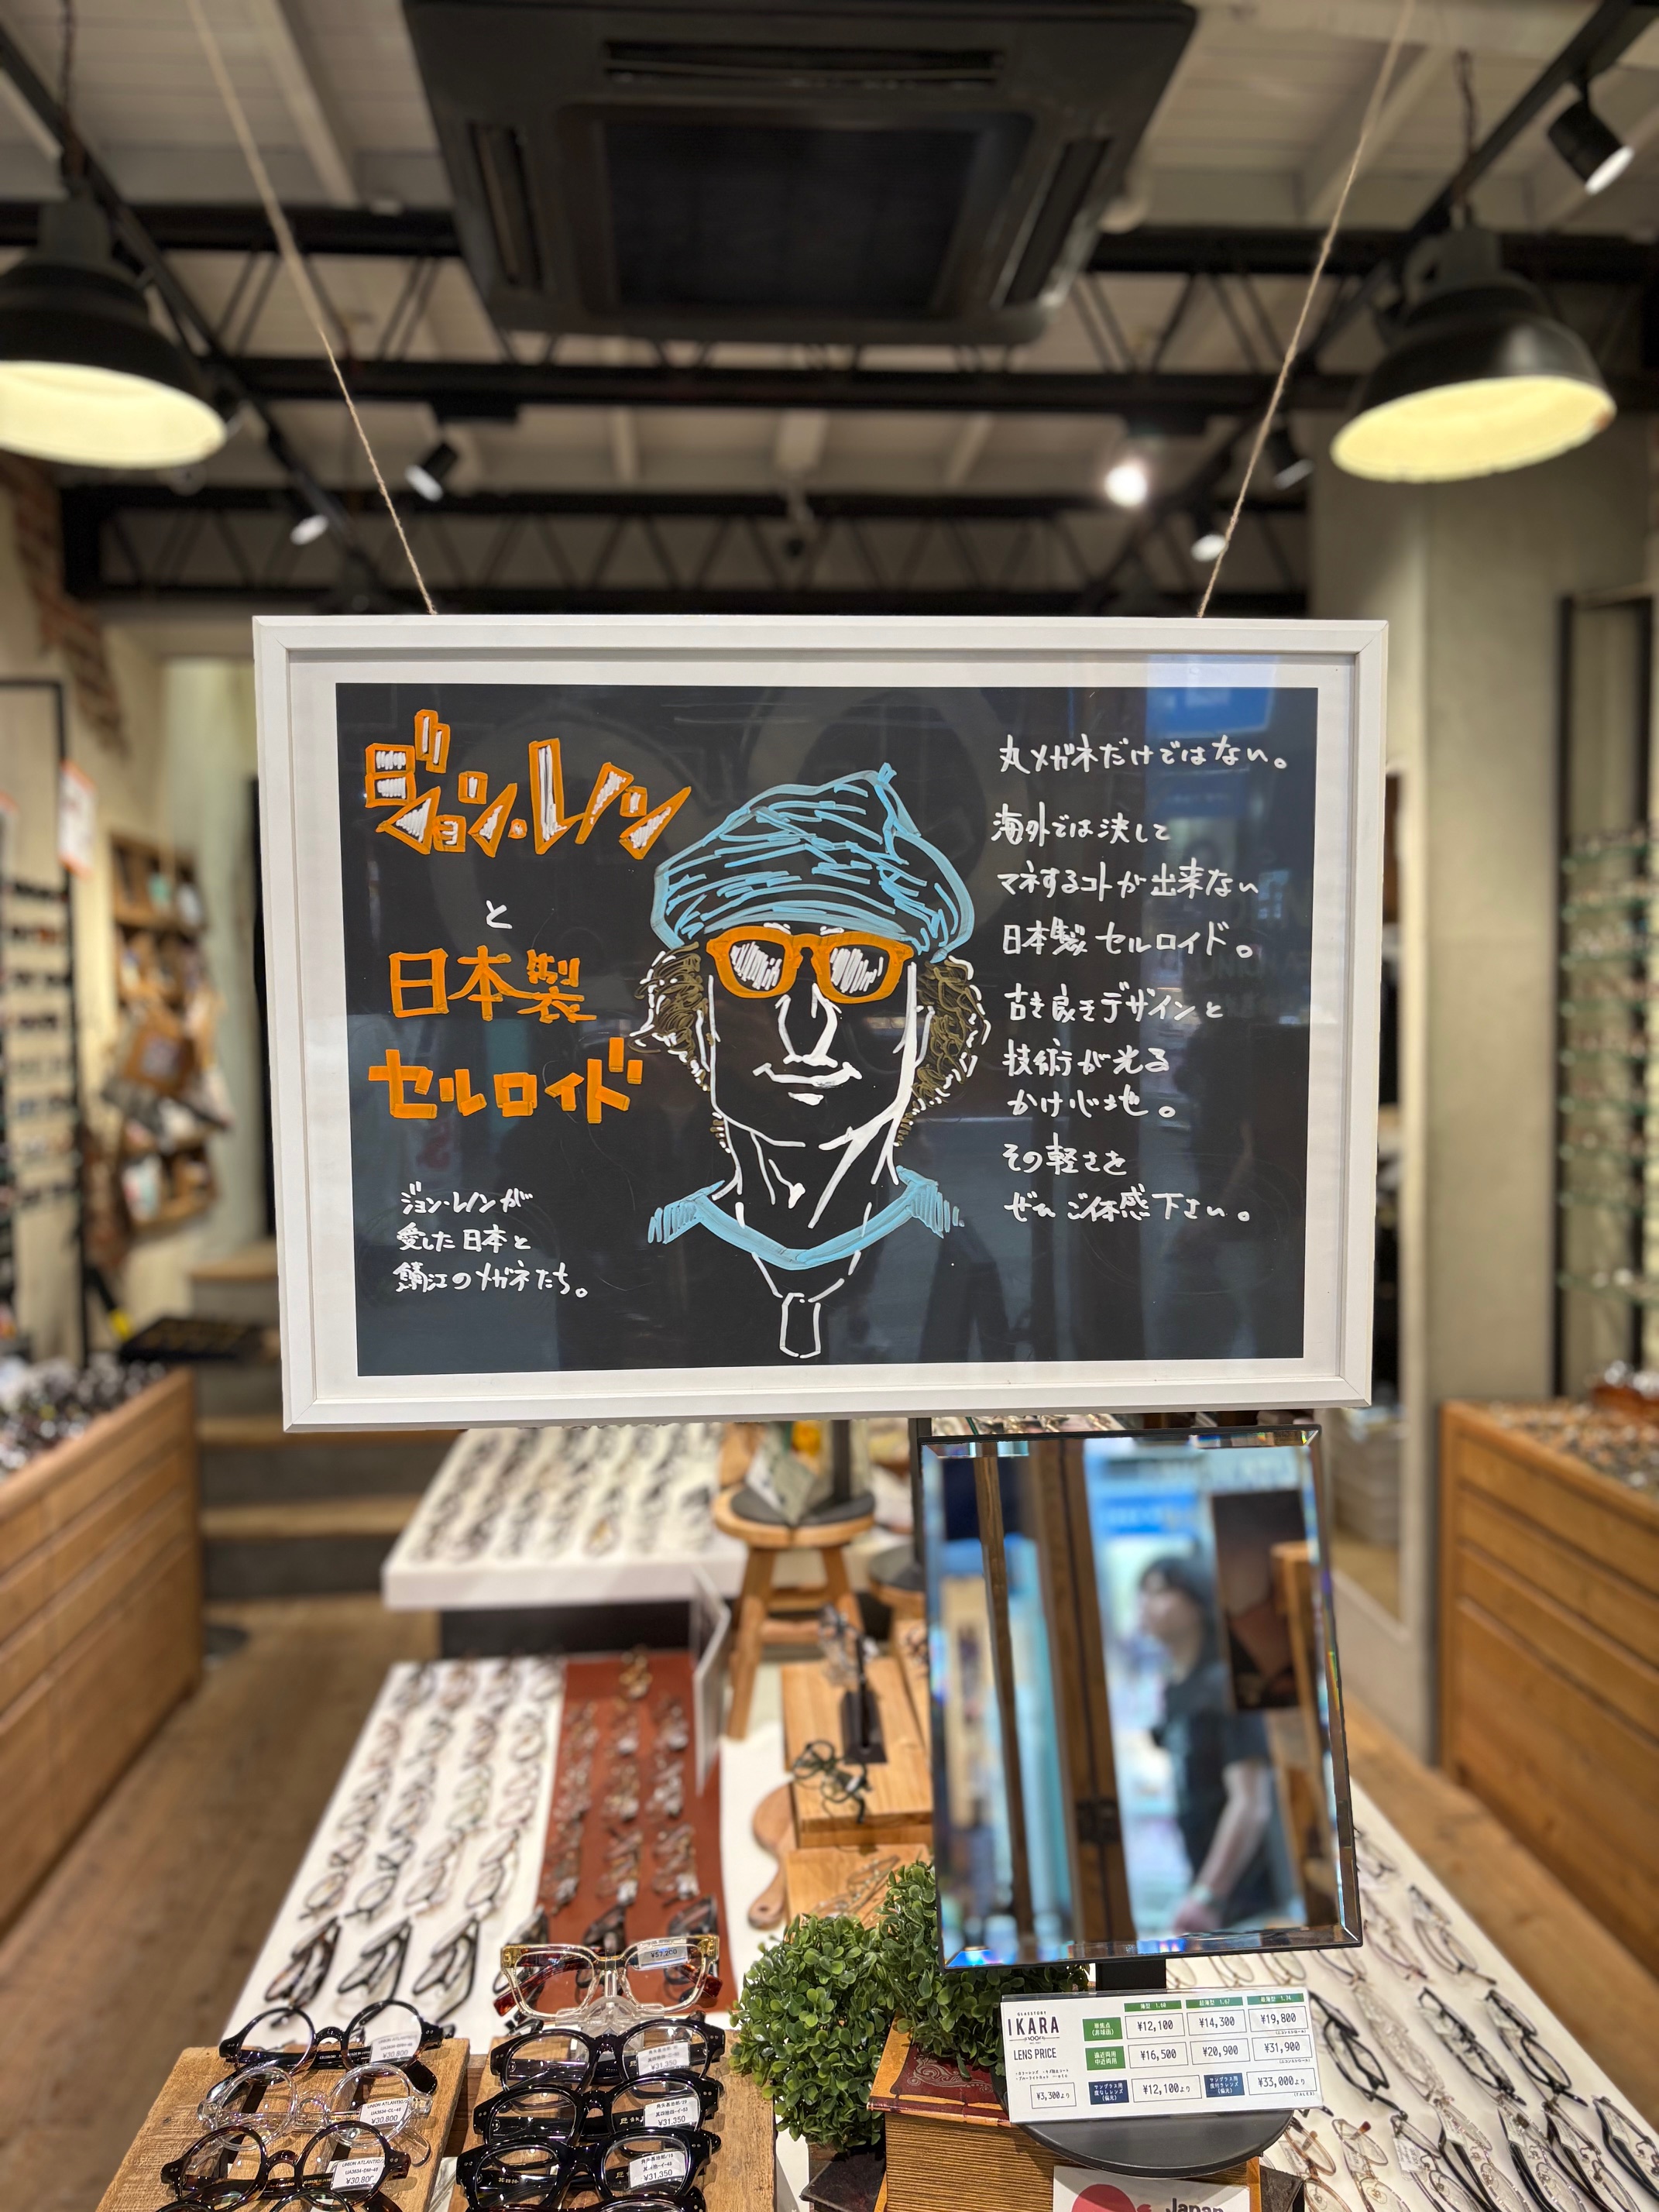 ジョン・レノン
と
日本製
セルロイド
ジョン・レノンが
愛した日本と
鯖江のメガネたち。
丸メガネだけではない。
海外では決して
マネするコトが出来ない
日本製セルロイド。
古き良きデザインと
技術が光る
かけ心地。
その軽さを
ぜひご体感下さい。
¥57,200
¥30,800
UNION ATLANTIC
¥30,800
UNION ATLANTIC
¥30,800
¥31,350
¥31,350
¥31,350
IKARA
LENS PRICE
¥3,300より
薄型 1.60
超薄型 1.67
1.74
単焦点
¥12,100
¥14,300
¥19,800
遠近両用
中近両用
¥16,500
¥20,900
¥31,900
サングラス用
度なしレンズ
(偏光)
¥12,100より
サングラス用
度付きレンズ
(偏光)
¥33,000より
Japan